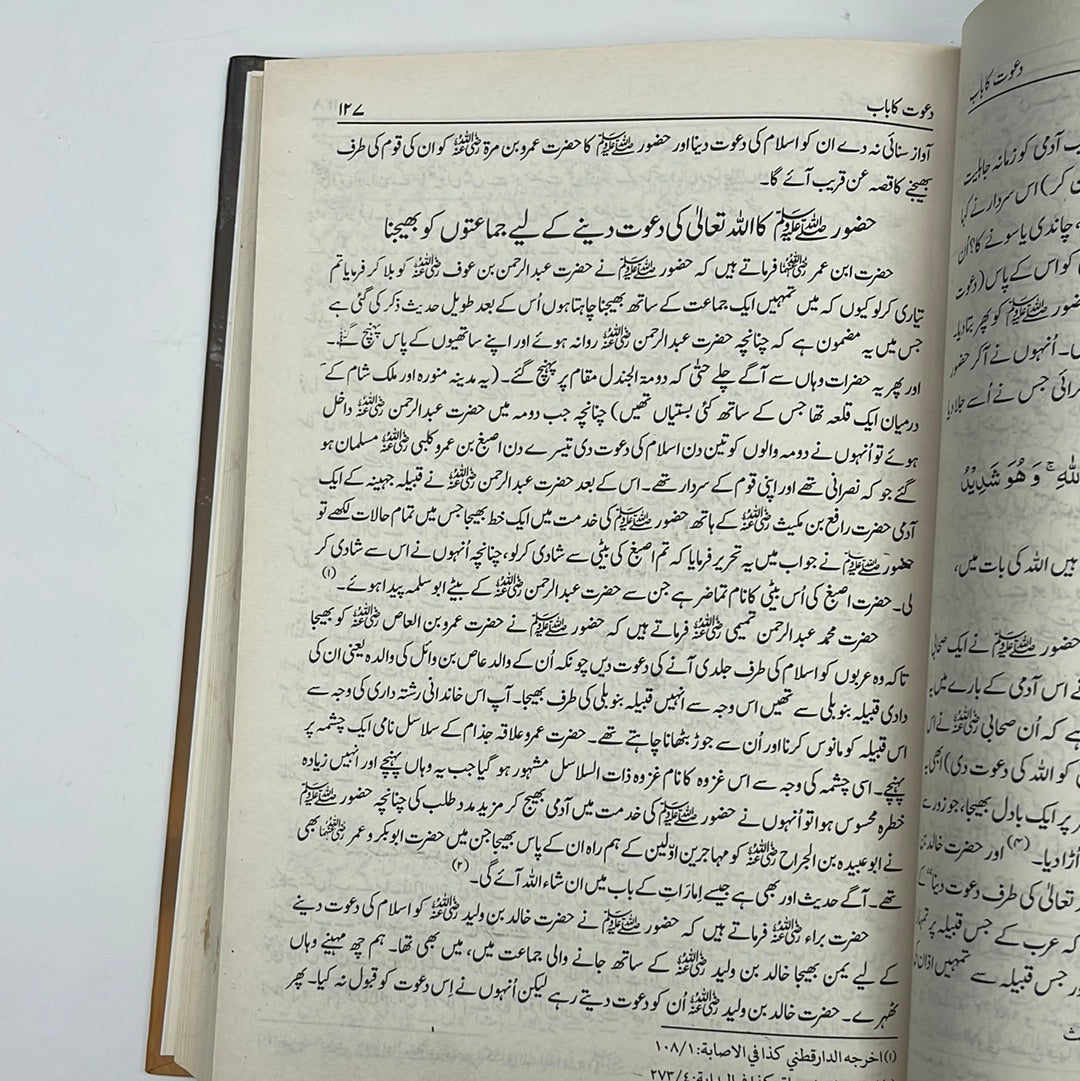 دعوت کا باب ۱۲۷
آواز سنائی نہ دے ان کو اسلام کی دعوت دینا اور حضور ﷺ کا حضرت عمرو بن مرۃ رضی اللہ عنہ کو ان کی قوم کی طرف
بھیجنے کا قصہ عن قریب آئے گا۔
حضور ﷺ کا اللہ تعالیٰ کی دعوت دینے کے لیے جماعتوں کو بھیجنا
حضرت ابن عمر رضی اللہ عنہما فرماتے ہیں کہ حضور ﷺ نے حضرت عبد الرحمن بن عوف رضی اللہ عنہ کو بلا کر فرمایا تم
تیاری کر لو کیوں کہ میں تمہیں ایک جماعت کے ساتھ بھیجنا چاہتا ہوں اُس کے بعد طویل حدیث ذکر کی گئی ہے
جس میں یہ مضمون ہے کہ چنانچہ حضرت عبد الرحمن رضی اللہ عنہ روانہ ہوئے اور اپنے ساتھیوں کے پاس پہنچ گئے۔
اور پھر یہ حضرات وہاں سے آگے چلے حتٰی کہ دومۃ الجندل مقام پر پہنچ گئے۔ (یہ مدینہ منورہ اور ملک شام کے
درمیان ایک قلعہ تھا جس کے ساتھ کئی بستیاں تھیں) چنانچہ جب دومہ میں حضرت عبد الرحمن رضی اللہ عنہ داخل
ہوئے تو اُنہوں نے دومہ والوں کو تین دن اسلام کی دعوت دی تیسرے دن اصبغ بن عمرو کلبی رضی اللہ عنہ مسلمان ہو
گئے جو کہ نصرانی تھے اور اپنی قوم کے سردار تھے۔ اس کے بعد حضرت عبد الرحمن رضی اللہ عنہ نے قبیلہ جہینہ کے ایک
آدمی حضرت رافع بن مکیث رضی اللہ عنہ کے ہاتھ حضور ﷺ کی خدمت میں ایک خط بھیجا جس میں تمام حالات لکھے تو
حضور ﷺ نے جواب میں یہ تحریر فرمایا کہ تم اصبغ کی بیٹی سے شادی کر لو، چنانچہ اُنہوں نے اس سے شادی کر
لی۔ حضرت اصبغ کی اُس بیٹی کا نام تماضر ہے جن سے حضرت عبد الرحمن رضی اللہ عنہ کے بیٹے ابو سلمہ پیدا ہوئے۔ (۱)
حضرت محمد عبد الرحمن تمیمی رضی اللہ عنہ فرماتے ہیں کہ حضور ﷺ نے حضرت عمرو بن العاص رضی اللہ عنہ کو بھیجا
تاکہ وہ عربوں کو اسلام کی طرف جلدی آنے کی دعوت دیں چونکہ اُن کے والد عاص بن وائل کی والدہ یعنی ان کی
دادی قبیلہ بنو بلی سے تھیں اس وجہ سے انہیں قبیلہ بنو بلی کی طرف بھیجا۔ آپ اس خاندانی رشتہ داری کی وجہ سے
اس قبیلہ کو مانوس کرنا اور اُن سے جوڑ بٹھانا چاہتے تھے۔ حضرت عمرو علاقہ جذام کے سلاسل نامی ایک چشمہ پر
پہنچے۔ اسی چشمہ کی وجہ سے اس غزوہ کا نام غزوہ ذات السلاسل مشہور ہو گیا جب یہ وہاں پہنچے اور انہیں زیادہ
خطرہ محسوس ہوا تو اُنہوں نے حضور ﷺ کی خدمت میں آدمی بھیج کر مزید مدد طلب کی چنانچہ حضور ﷺ
نے ابو عبیدہ بن الجراح رضی اللہ عنہ کو مہاجرین اوّلین کے ہم راہ ان کے پاس بھیجا جن میں حضرت ابو بکر و عمر رضی اللہ عنہما بھی
تھے۔ آگے حدیث اور بھی ہے جیسے امارات کے باب میں ان شاء اللہ آئے گی۔ (۲)
حضرت براء رضی اللہ عنہ فرماتے ہیں کہ حضور ﷺ نے حضرت خالد بن ولید رضی اللہ عنہ کو اسلام کی دعوت دینے
کے لیے یمن بھیجا خالد بن ولید رضی اللہ عنہ کے ساتھ جانے والی جماعت میں، میں بھی تھا۔ ہم چھ مہینے وہاں
ٹھہرے۔ حضرت خالد بن ولید رضی اللہ عنہ اُن کو دعوت دیتے رہے لیکن اُنہوں نے اِس دعوت کو قبول نہ کیا۔ پھر
(۱) اخرجه الدارقطني كذا في الاصابة: ۱۰۸/۱
دعوت کا باب
ب آدمی کو زمانہ جاہلیت
ت کر) اس سردار نے کہا
، چاندی یا سونے کا؟ اُن
کو اس کے پاس (دعوت
ضور ﷺ کو پھر بتا دیا۔
ں۔ اُنہوں نے آ کر حضور
گرائی جس نے اُسے جلا دیا
وَهُوَ شَدِيدُ
ہیں اللہ کی بات میں،
حضور ﷺ نے ایک صحابی
نے اس آدمی کے بارے میں
ہے کہ اُن صحابی رضی اللہ عنہ نے اس
کو اللہ کی دعوت دی) ابھی
پر ایک بادل بھیجا، جو زور سے
اُڑا دیا۔ (۴) اور حضرت خالد
تعالیٰ کی طرف دعوت دینا“
کہ عرب کے جس قبیلہ پر
ور جس قبیلہ سے تمہیں اذان